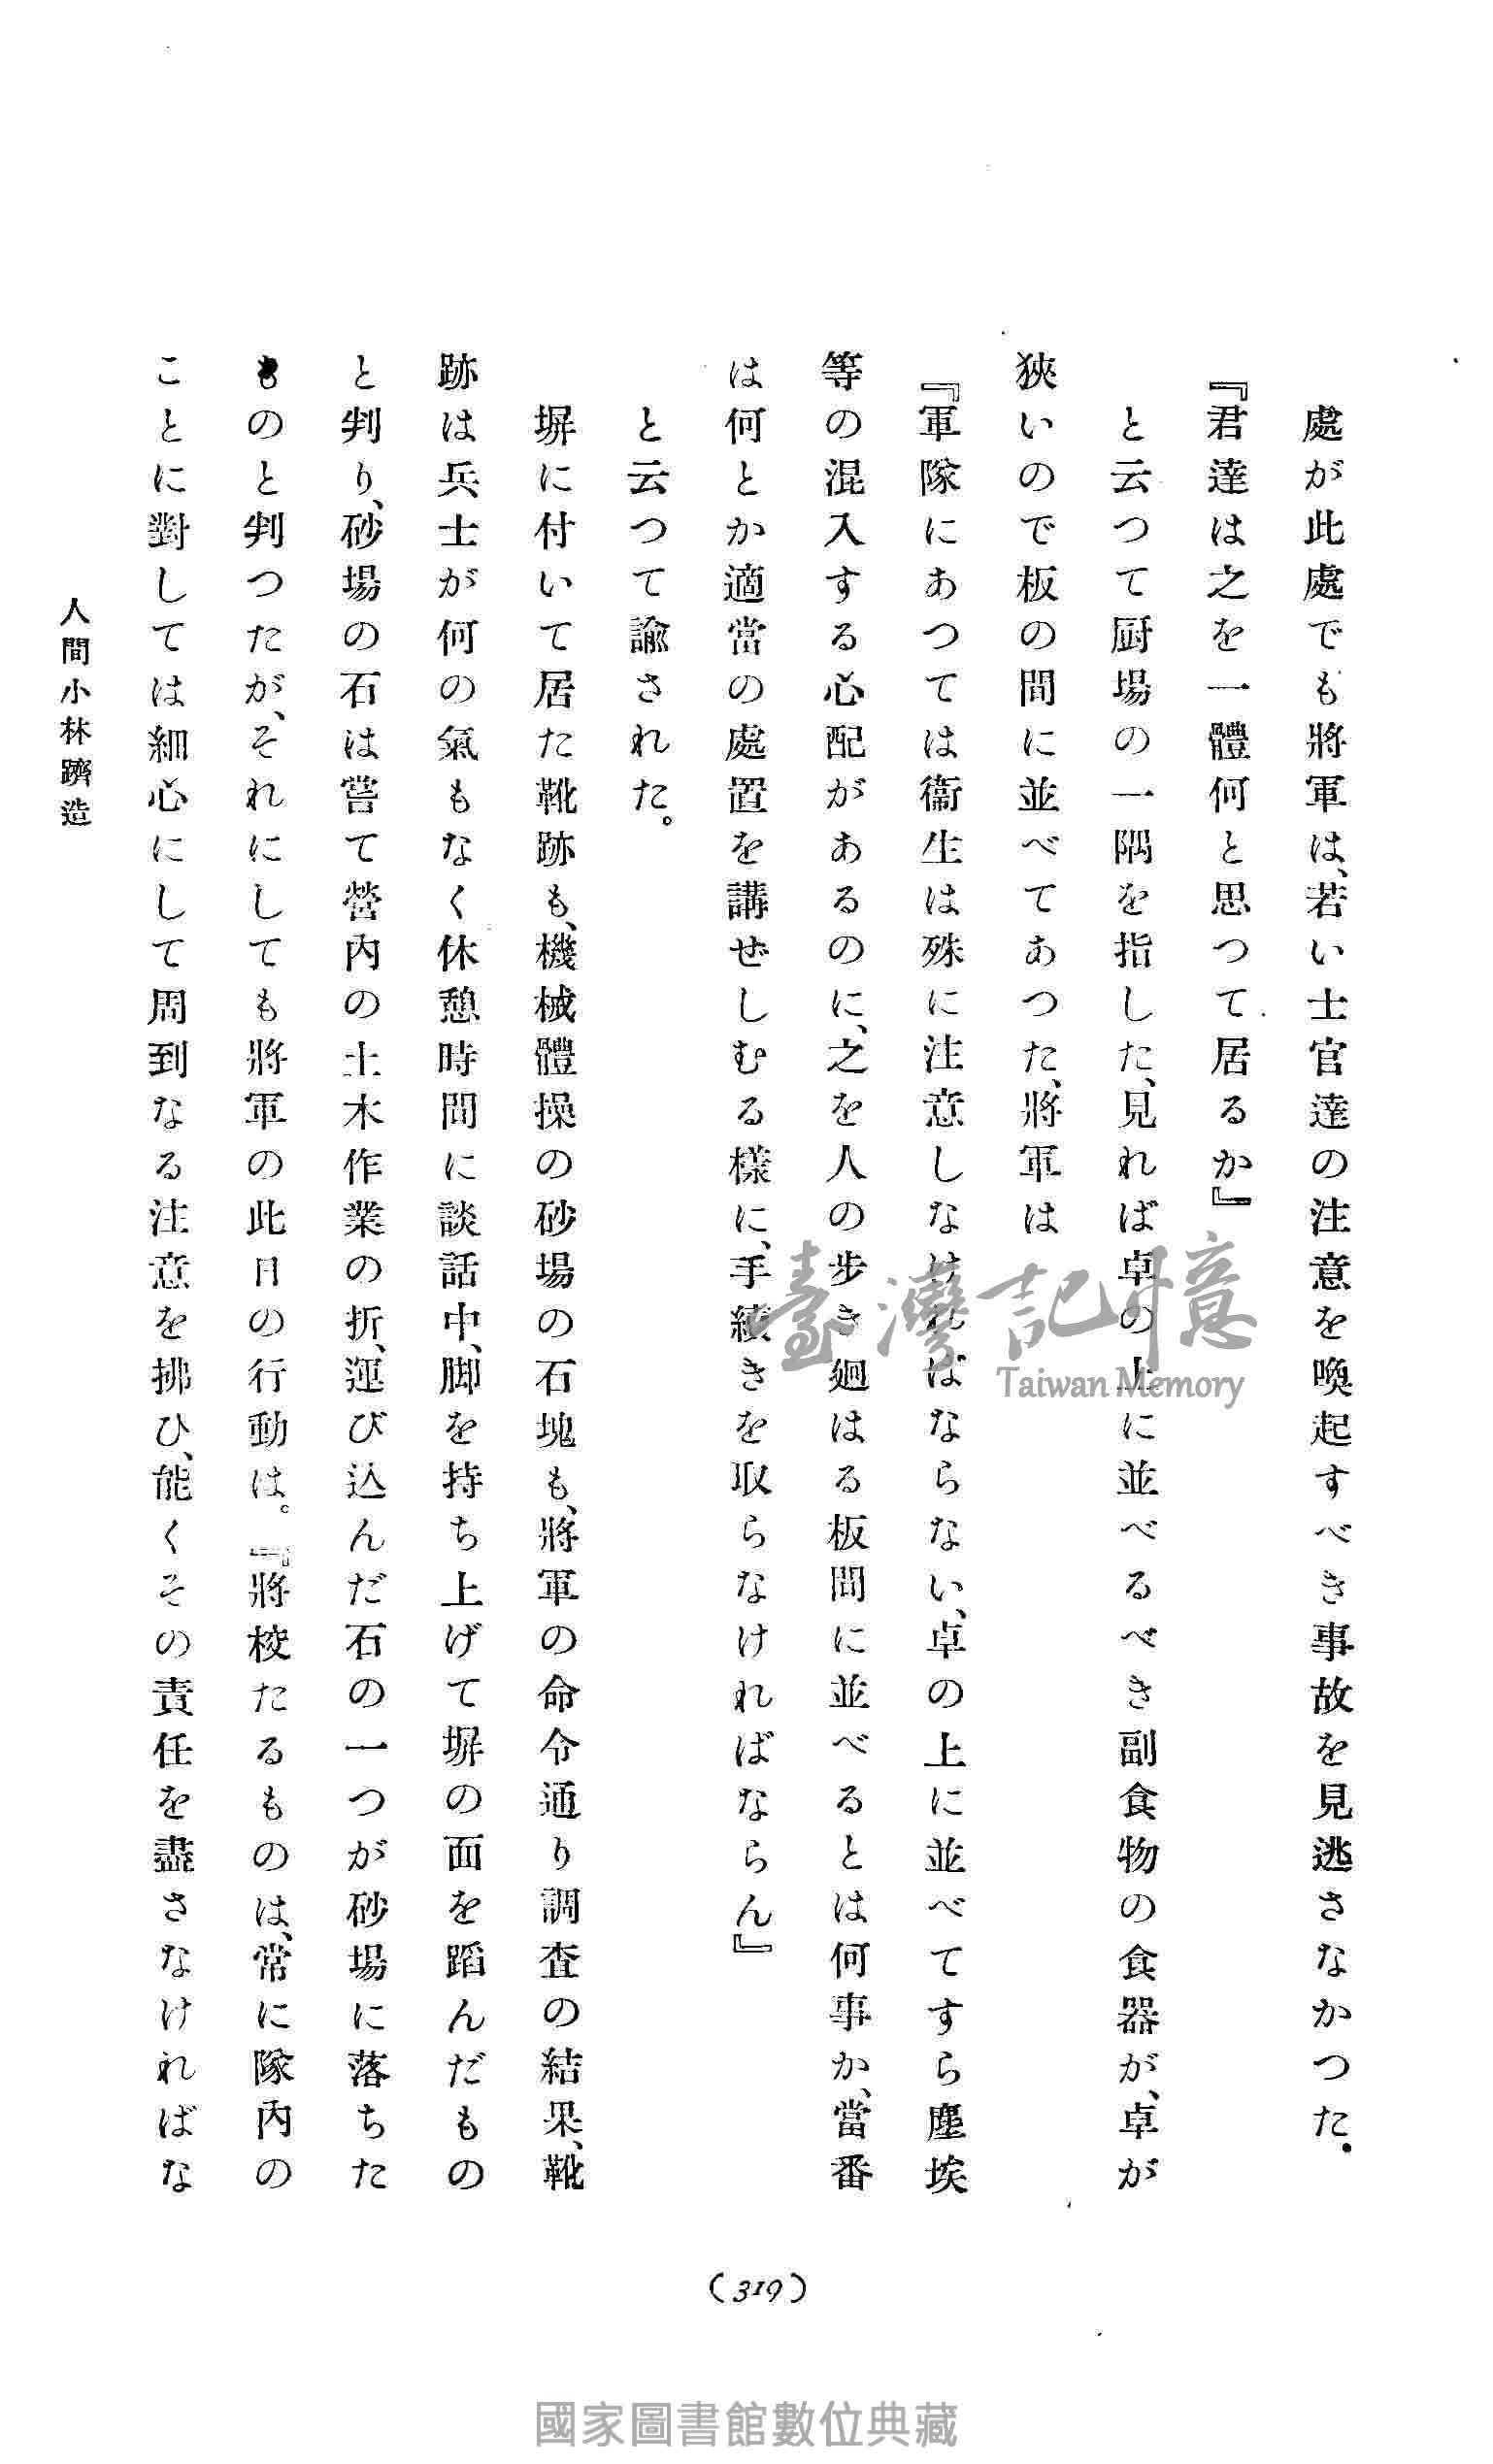 處が此處でも將軍は、若い士官達の注意を喚起すべき事故を見逃さなかつた。
『君達は之を一體何と思つて居るか』
と云つて厨場の一隅を指した、見れば卓の上に並べるべき副食物の食器が、卓が
狹いので板の間に並べてあつた、將軍は
『軍隊にあつては衞生は殊に注意しなければならない、卓の上に並べてすら塵埃
等の混入する心配があるのに、之を人の步き廻はる板間に並べるとは何事か、當番
は何とか適當の處置を講ぜしむる樣に、手續きを取らなければならん』
と云つて諭された。
塀に付いて居た靴跡も、機械體操の砂場の石塊も、將軍の命令通り調査の結果、靴
跡は兵士が何の氣もなく休憩時間に談話中、脚を持ち上げて塀の面を蹈んだもの
と判り、砂場の石は嘗て營內の土木作業の折、運び込んだ石の一つが砂場に落ちた
ものと判つたが、それにしても將軍の此日の行動は。『將校たるものは、常に隊內の
ことに對しては細心にして周到なる注意を拂ひ、能くその責任を盡さなければな
人間小林躋造
(319)
臺灣記憶
Taiwan Memory
國家圖書館數位典藏